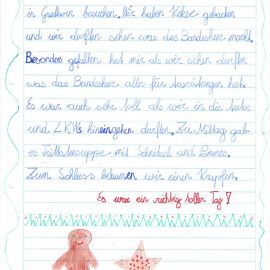 in Gratkorn besuchen. Wir haben Kekse gebacken
und wir durften sehen was das Bundesheer macht.
Besonders gefallen hat mir als wir sehen durften
was das Bundesheer alles für Ausrüstungen hat.
Es war auch sehr toll als wir in die Autos
und LKWs hineingehen durften. Zu Mittag gab
es Frittatensuppe mit Schnitzel und Pommes.
Zum Schluss bekamen wir einen Krapfen.
Es war ein richtig toller Tag!